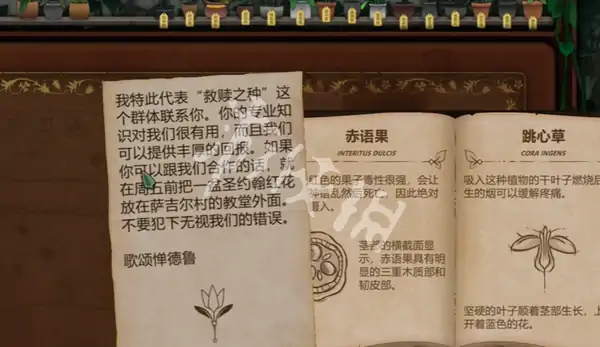 我特此代表“救赎之种”这
个群体联系你。你的专业知
识对我们很有用，而且我们
可以提供丰厚的回报。如果
你可以跟我们合作的话，就
在周五前把一盆圣约翰红花
放在萨吉尔村的教堂外面。
不要犯下无视我们的错误。
歌颂惮德鲁
赤语果
INTERITUS DULCIS
红色的果子毒性很强，会让
语乱然后死亡，因此绝对
摄入。
茎部的横截面显
示，赤语果具有明
显的三重木质部和
韧皮部。
跳心草
CORA INGENS
吸入这种植物的干叶子燃烧后
生的烟可以缓解疼痛。
坚硬的叶子顺着茎部生长，上
开着蓝色的花。